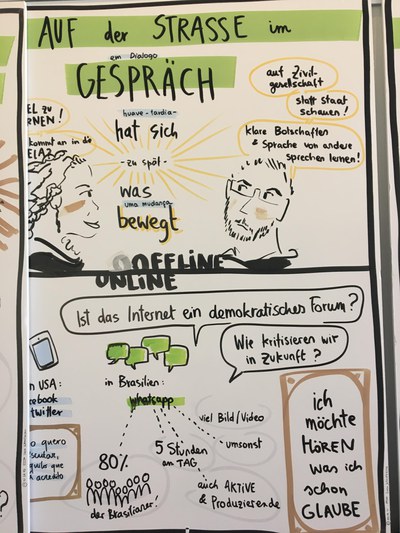 AUF der STRASSE im
em Dialogo
GESPRÄCH
EL ZU
RNEN!
kommt an in die
houve-tardia-
hat sich
- zu spät -
was
uma mudança
bewegt
auf Zivil-
gesellschaft
statt Staat
schauen!
klare Botschaften
& Sprache von andere
sprechen lernen!
OFFLINE
ONLINE
Ist das Internet ein demokratisches Forum?
Wie kritisieren wir
in Zukunft?
n USA:
cebook
twitter
o quero
escutar,
aquilo que
acredito
in Brasilien:
whatsapp
80%
der Brasilianer!
5 Stunden
am TAG
viel Bild/Video
umsonst
auch AKTIVE
& Produzierende
ich
möchte
HÖREN
was ich
schon
GLAUBE